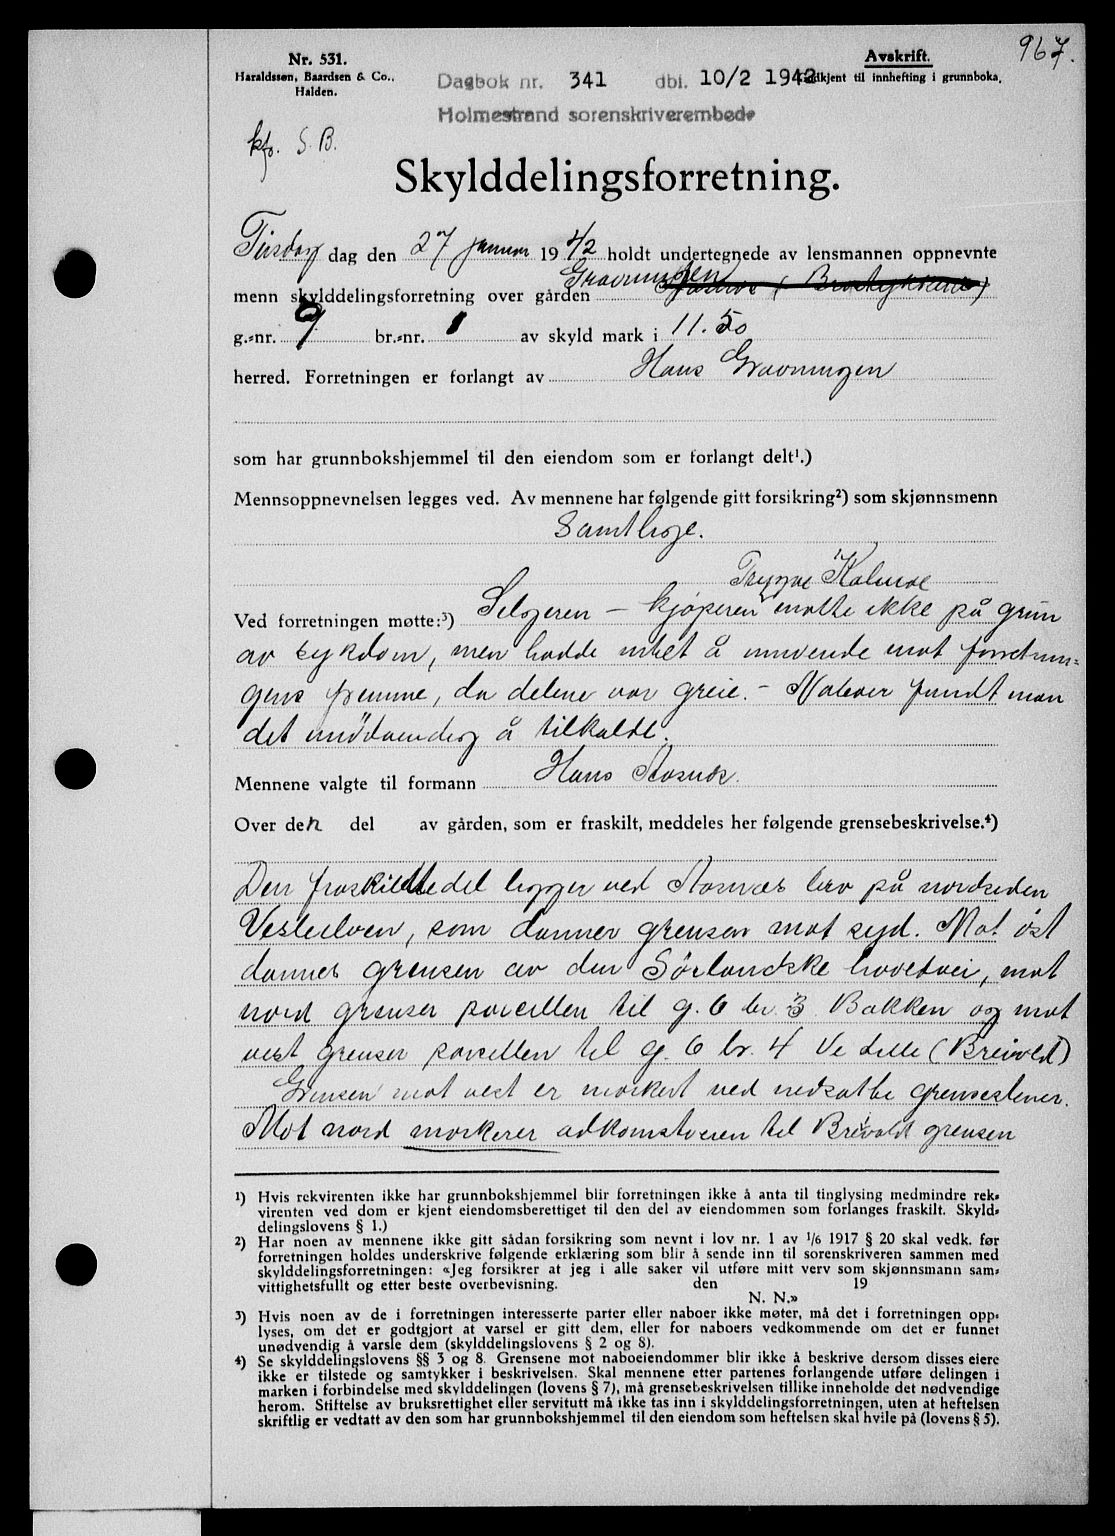 967.
Nr. 531.
Haraldssøn, Baardsen & Co.,
Halden.
Avskrift.
Godkjent til innhefting i grunnboka.
Dagbok nr. 341 dbl. 10/2 1942
Holmestrand sorenskriverembede
kfr. S. B.
Skylddelingsforretning.
Tirsdag dag den 27 januar 1942 holdt undertegnede av lensmannen oppnevnte
Gravningen
menn skylddelingsforretning over gården
g.-nr. 9 br.-nr. 1 av skyld mark i 11.50
herred. Forretningen er forlangt av Hans Gravningen
som har grunnbokshjemmel til den eiendom som er forlangt delt¹.)
Mennsoppnevnelsen legges ved. Av mennene har følgende gitt forsikring²) som skjønnsmenn
Samtlige.
Trygve Kalnæs
Ved forretningen møtte:³) Selgeren – kjøperen møtte ikke på grun
av sykdom, men hadde intet å innvende mot forretnin-
gens fremme, da delene var greie. – Naboer fandt man
det unødvendig å tilkalde.
Mennene valgte til formann Hans Aasnes.
Over den del av gården, som er fraskilt, meddeles her følgende grensebeskrivelse.⁴)
Den fraskildte del ligger ved Aasnes bro på nordsiden
Vesleelven, som danner grensen mot syd. Mot øst
dannes grensen av den Sørlandske hovedvei, mot
nord grenser parcellen til g. 6 br. 3 Bakken og mot
vest grenser parcellen til g. 6 br. 4 Ve lille (Breivold)
Grensen mot vest er markert ved nedsatte grensestener.
Mot nord markerer adkomstveien til Breivold grensen
¹) Hvis rekvirenten ikke har grunnbokshjemmel blir forretningen ikke å anta til tinglysing medmindre rek-
virenten ved dom er kjent eiendomsberettiget til den del av eiendommen som forlanges fraskilt. Skyld-
delingslovens § 1.)
²) Har noen av mennene ikke gitt sådan forsikring som nevnt i lov nr. 1 av 1/6 1917 § 20 skal vedk. før
forretningen holdes underskrive følgende erklæring som blir å sende inn til sorenskriveren sammen med
skylddelingsforretningen: «Jeg forsikrer at jeg i alle saker vil utføre mitt verv som skjønnsmann sam-
vittighetsfullt og etter beste overbevisning. den 19
N. N.»
³) Hvis noen av de i forretningen interesserte parter eller naboer ikke møter, må det i forretningen opp-
lyses, om det er godtgjort at varsel er gitt dem, eller for naboers vedkommende om det er funnet
unødvendig å varsle dem (skylddelingslovens § 2 og 8).
⁴) Se skylddelingslovens §§ 3 og 8. Grensene mot naboeiendommer blir ikke å beskrive dersom disses eiere
ikke er tilstede og samtykker i beskrivelsen. Skal mennene etter partenes forlangende utføre delingen i
marken i forbindelse med skylddelingen (lovens § 7), må grensebeskrivelsen tillike inneholde det nødvendige
herom. Stiftelse av bruksrettighet eller servitutt må ikke tas inn i skylddelingsforretningen, uten at heftelsen
skriftlig er vedtatt av den som har grunnbokshjemmel til den eiendom som heftelsen skal hvile på (lovens § 5).